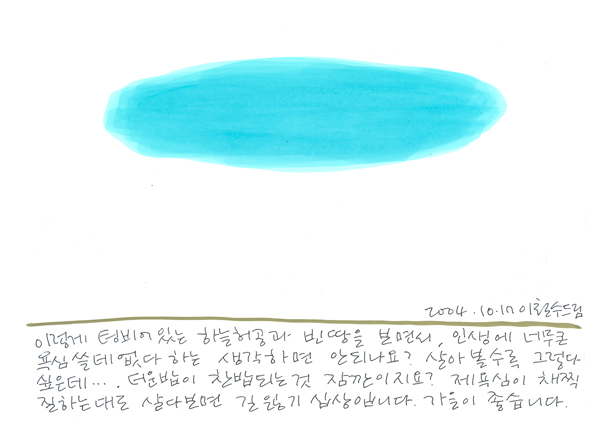 2004.10.17 이철수드림
이렇게 텅비어있는 하늘허공과 빈땅을 보면서, 인생에 너무큰
욕심 쓸데없다 하는 생각하면 안되나요? 살아볼수록 그렇다
싶은데···. 더운밥이 찬밥되는것 잠깐이지요? 제욕심이 채찍
질하는대로 살다보면 길 잃기 십상입니다. 가을이 좋습니다.